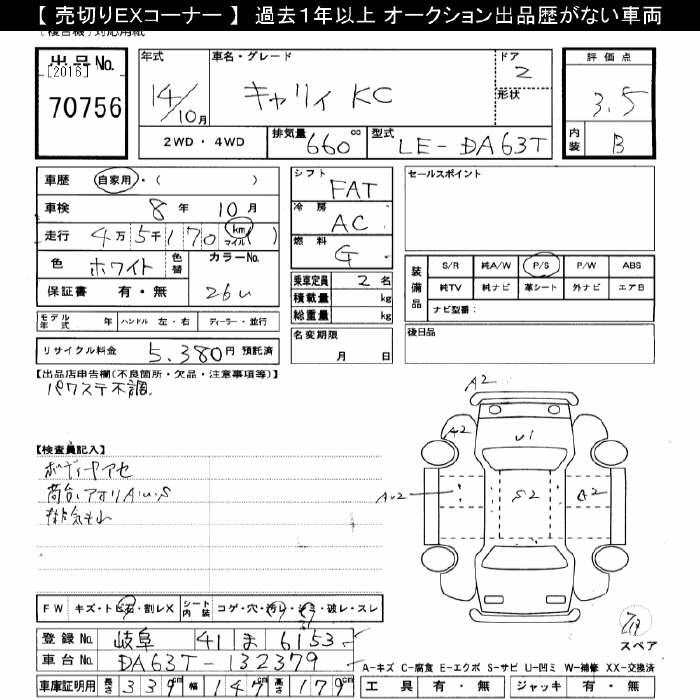 【 売切りEXコーナー 】 過去１年以上 オークション出品歴がない車両
出品No.
[2016]
70756
年式
14/10月
車名・グレード
キャリイ KC
ドア
2
形状
評価点
3.5
内装
B
2WD・4WD
排気量
660
cc
型式
LE-DA63T
車歴
自家用・( )
車検
8年 10月
走行
4万5千170 km マイル ( )
色
ホワイト
色替
カラーNo.
26U
保証書 有・無
モデル年式 年 ハンドル 左・右 ディーラー・並行
リサイクル料金 5,380円 預託済
シフト
FAT
冷房
AC
燃料
G
乗車定員 2名
積載量 kg
総重量 kg
名変期限
月 日
セールスポイント
装備品
S/R 純A/W P/S P/W ABS
純TV 純ナビ 革シート 外ナビ エアB
ナビ型番：
後日品
【出品店申告欄(不良箇所・欠品・注意事項等)】
パワステ不調.
【検査員記入】
ボディーヤアセ
荷台、アオリA・U・S
A2
A2
U1
AU2
S2
A2
スペア
FW キズ・トビ石・割レX
シート内装 コゲ・穴・汚レ・シミ・破レ・スレ
登録No. 岐阜 41 ま 6153
車台No. DA63T-132379
車庫証明用 長さ 339cm 幅 147cm 高さ 179cm
A-キズ C-腐食 E-エクボ S-サビ U-凹ミ W-補修 XX-交換済
工具 有・無 ジャッキ 有・無